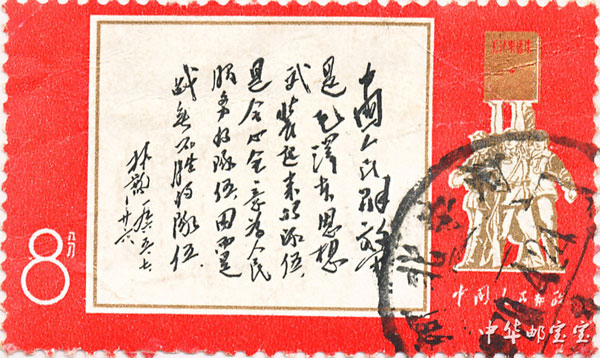 中國人民解放军
是毛澤东思想
武装起来的队伍,
是全心全意为人民
服务的队伍,因而是
战无不胜的队伍.
林彪 一九六五、七
、廿六
8分
中国人民邮政
河北
中华邮宝宝